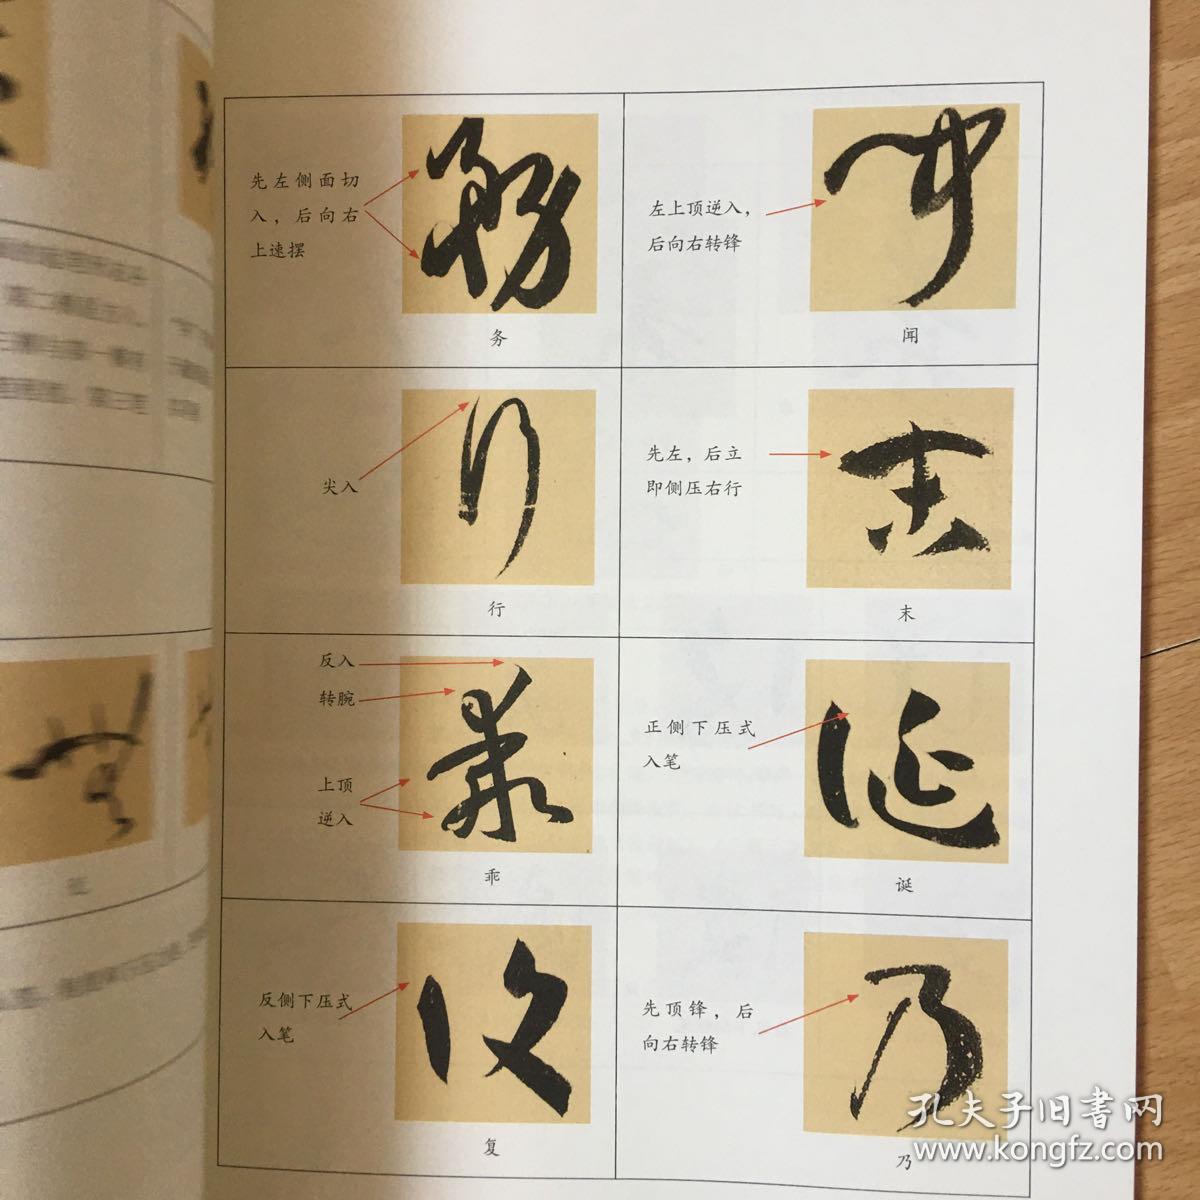 先左侧面切
入，后向右
上速摆
务
左上顶逆入，
后向右转锋
闻
尖入
行
先左，后立
即侧压右行
末
反入
转腕
上顶
逆入
乖
正侧下压式
入笔
诞
反侧下压式
入笔
复
先顶锋，后
向右转锋
乃
孔夫子旧书网
www.kongfz.com